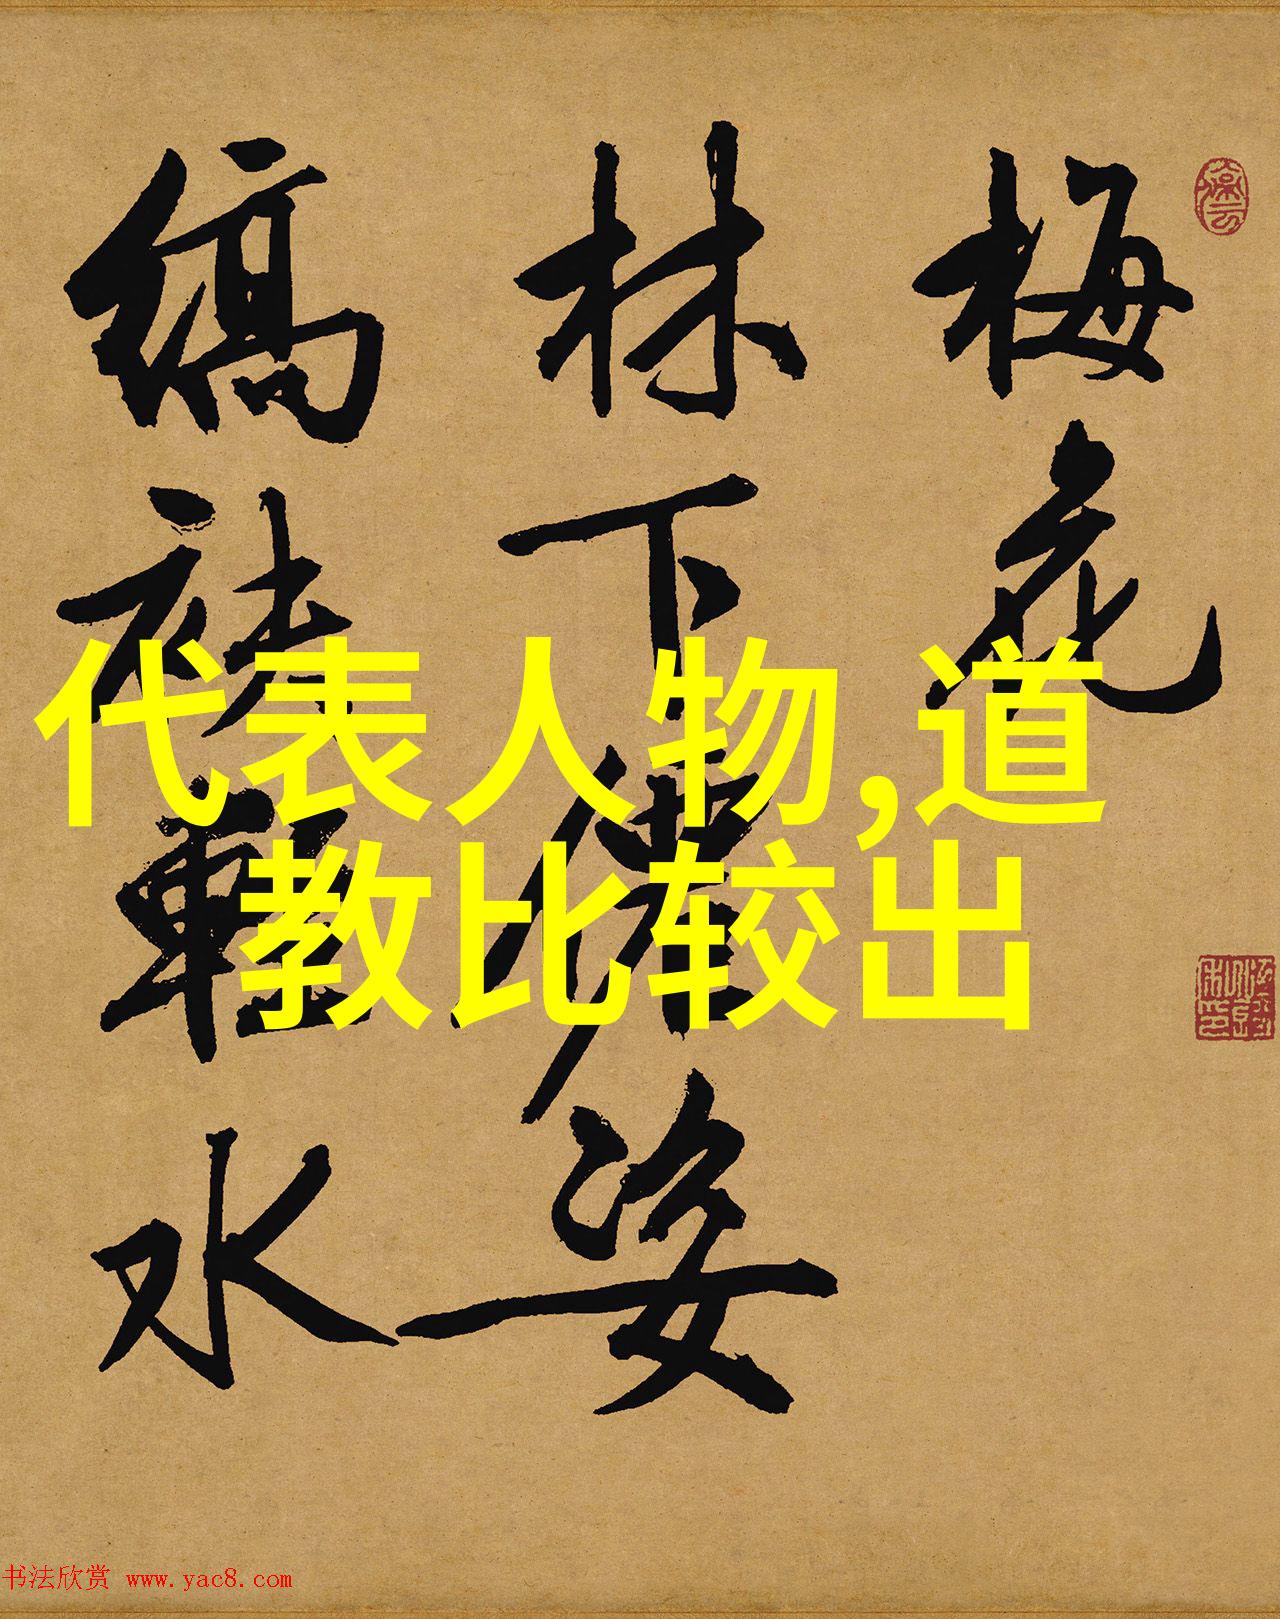 梅花
林下僊姿
缟袂輕水
代表人物,道
教比较出
书法欣赏 www.yac8.com